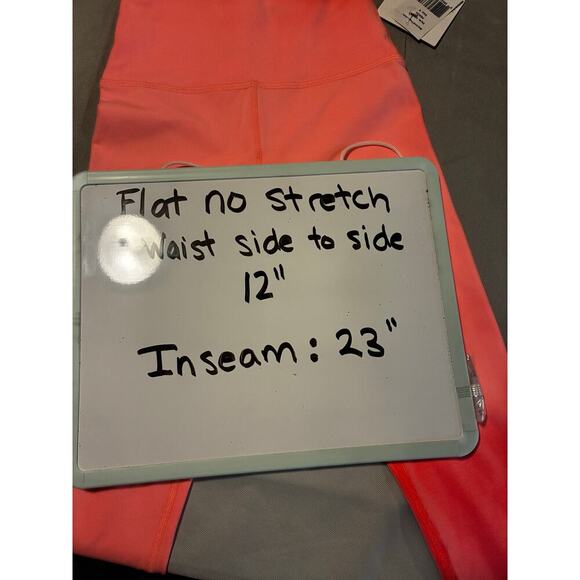 Flat no stretch
Waist side to side
12"
Inseam: 23"